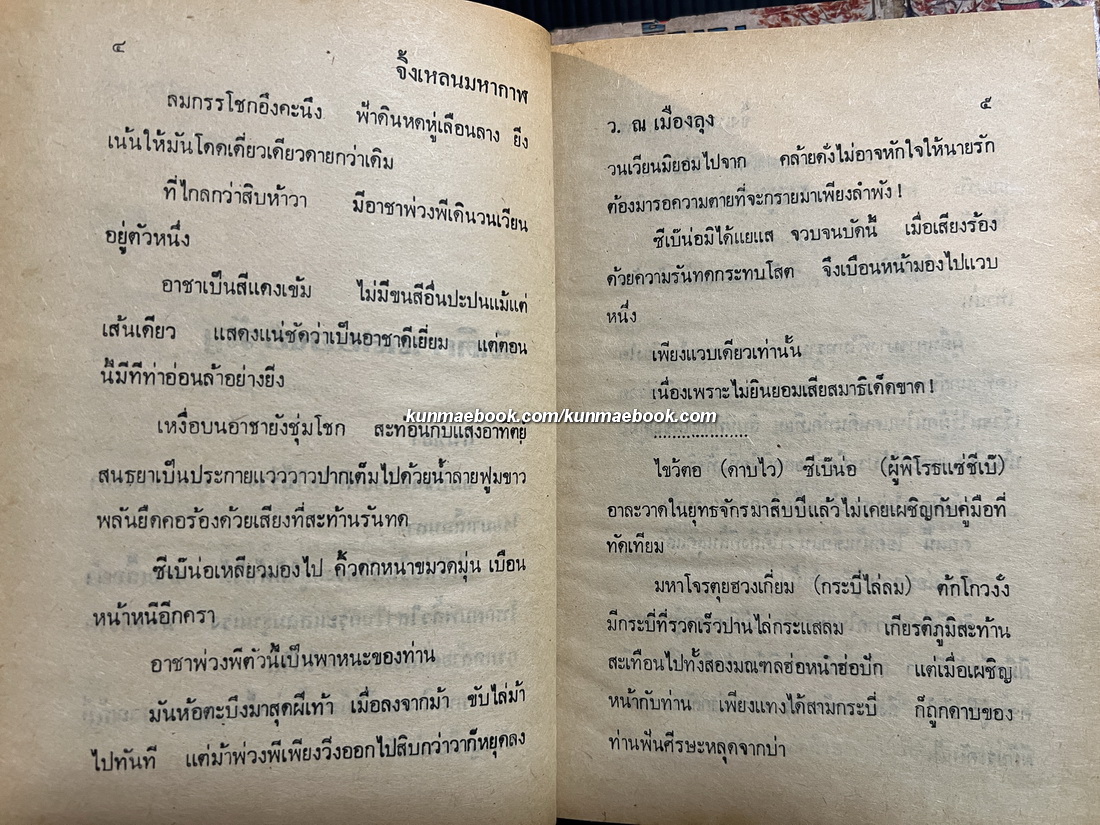 ๔
จิ้งเหลนมหากาฬ
ลมกรรโชกอึงคะนึง ฟ้าดินหดหู่เลือนลาง ยิ่ง
เน้นให้มันโดดเดี่ยวเดียวดายกว่าเดิม
ที่ไกลกว่าสิบห้าวา มีอาชาพ่วงพีเดินวนเวียน
อยู่ตัวหนึ่ง
อาชาเป็นสีแดงเข้ม ไม่มีขนสีอื่นปะปนแม้แต่
เส้นเดียว แสดงแน่ชัดว่าเป็นอาชาดีเยี่ยม แต่ตอน
นี้มีทีท่าอ่อนล้าอย่างยิ่ง
เหงื่อบนอาชายังชุ่มโชก สะท้อนกับแสงอาทิตย์
สนธยาเป็นประกายแวววาวปากเต็มไปด้วยน้ำลายฟูมขาว
พลันยืดคอร้องด้วยเสียงที่สะท้านรันทด
ซีเบ๊น่อเหลียวมองไป คิ้วดกหนาขมวดมุ่น เบือน
หน้าหนีอีกครา
อาชาพ่วงพีตัวนี้เป็นพาหนะของท่าน
มันห้อตะบึงมาสุดฝีเท้า เมื่อลงจากม้า ขับไล่ม้า
ไปทันที แต่ม้าพ่วงพีเพียงวิ่งออกไปสิบกว่าวาก็หยุดลง
๕
ว. ณ เมืองลุง
วนเวียนมิยอมไปจาก คล้ายดั่งไม่อาจหักใจให้นายรัก
ต้องมารอความตายที่จะกรายมาเพียงลำพัง !
ซีเบ๊น่อมิได้แยแส จวบจนบัดนี้ เมื่อเสียงร้อง
ด้วยความรันทดกระทบโสต จึงเบือนหน้ามองไปแวบ
หนึ่ง
เพียงแวบเดียวเท่านั้น
เนื่องเพราะไม่ยินยอมเสียสมาธิเด็ดขาด !
kunmaebook.com/kunmaebook.com
....................
ไขว้ตอ (ดาบไว) ซีเบ๊น่อ (ผู้พิโรธแซ่ซีเบ๊)
อาละวาดในยุทธจักรมาสิบปีแล้วไม่เคยเผชิญกับคู่มือที่
ทัดเทียม
มหาโจรตุยฮวงเกี่ยม (กระบี่ไล่ลม) ต้กโกวงั้ง
มีกระบี่ที่รวดเร็วปานไล่กระแสลม เกียรติภูมิสะท้าน
สะเทือนไปทั้งสองมณฑลฮ่อหนำฮ่อปัก แต่เมื่อเผชิญ
หน้ากับท่าน เพียงแทงได้สามกระบี่ ก็ถูกดาบของ
ท่านฟันศีรษะหลุดจากบ่า